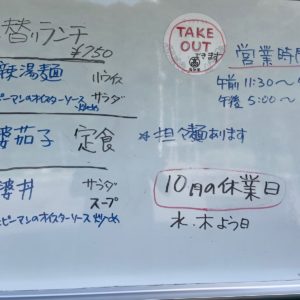 替りランチ
¥750
辣湯麺 小ライス
ピーマンのオイスターソース炒め サラダ
婆茄子 定食
婆丼 サラダ
スープ
ピーマンのオイスターソース炒め
TAKE
OUT
できます
営業時間
午前 11:30~
午後 5:00~
*担々麺あります
10月の休業日
水・木よう日